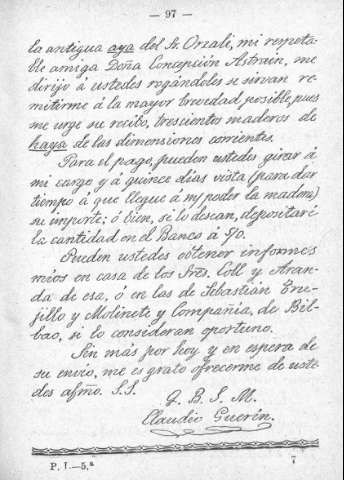 — 97 —
la antigua aya del Sr. Orzali, mi respeta-
ble amiga Doña Concepción Astrain, me
dirijo á ustedes rogándoles se sirvan re-
mitirme á la mayor brevedad posible, pues
me urge su recibo, trescientos maderos de
haya de las dimensiones corrientes.
Para el pago, pueden ustedes girar á
mi cargo y á quince días vista (para dar
tiempo á que llegue á mi poder la madera)
su importe; ó bien, se lo desean, depositaré
la cantidad en el Banco á
Pueden ustedes obtener informes
míos en casa de los Sres. Coll y Aran-
da de esa, ó en las de Sebastián Tru-
jillo y Molinete y Compañía, de Bil-
bao, si lo consideran oportuno.
Sin más por hoy y en espera de
su envío, me es grato ofrecerme de uste-
des afmo. S.S.
Q. B. S. M.
Claudio Guerin.
P. I.—5.ª 7